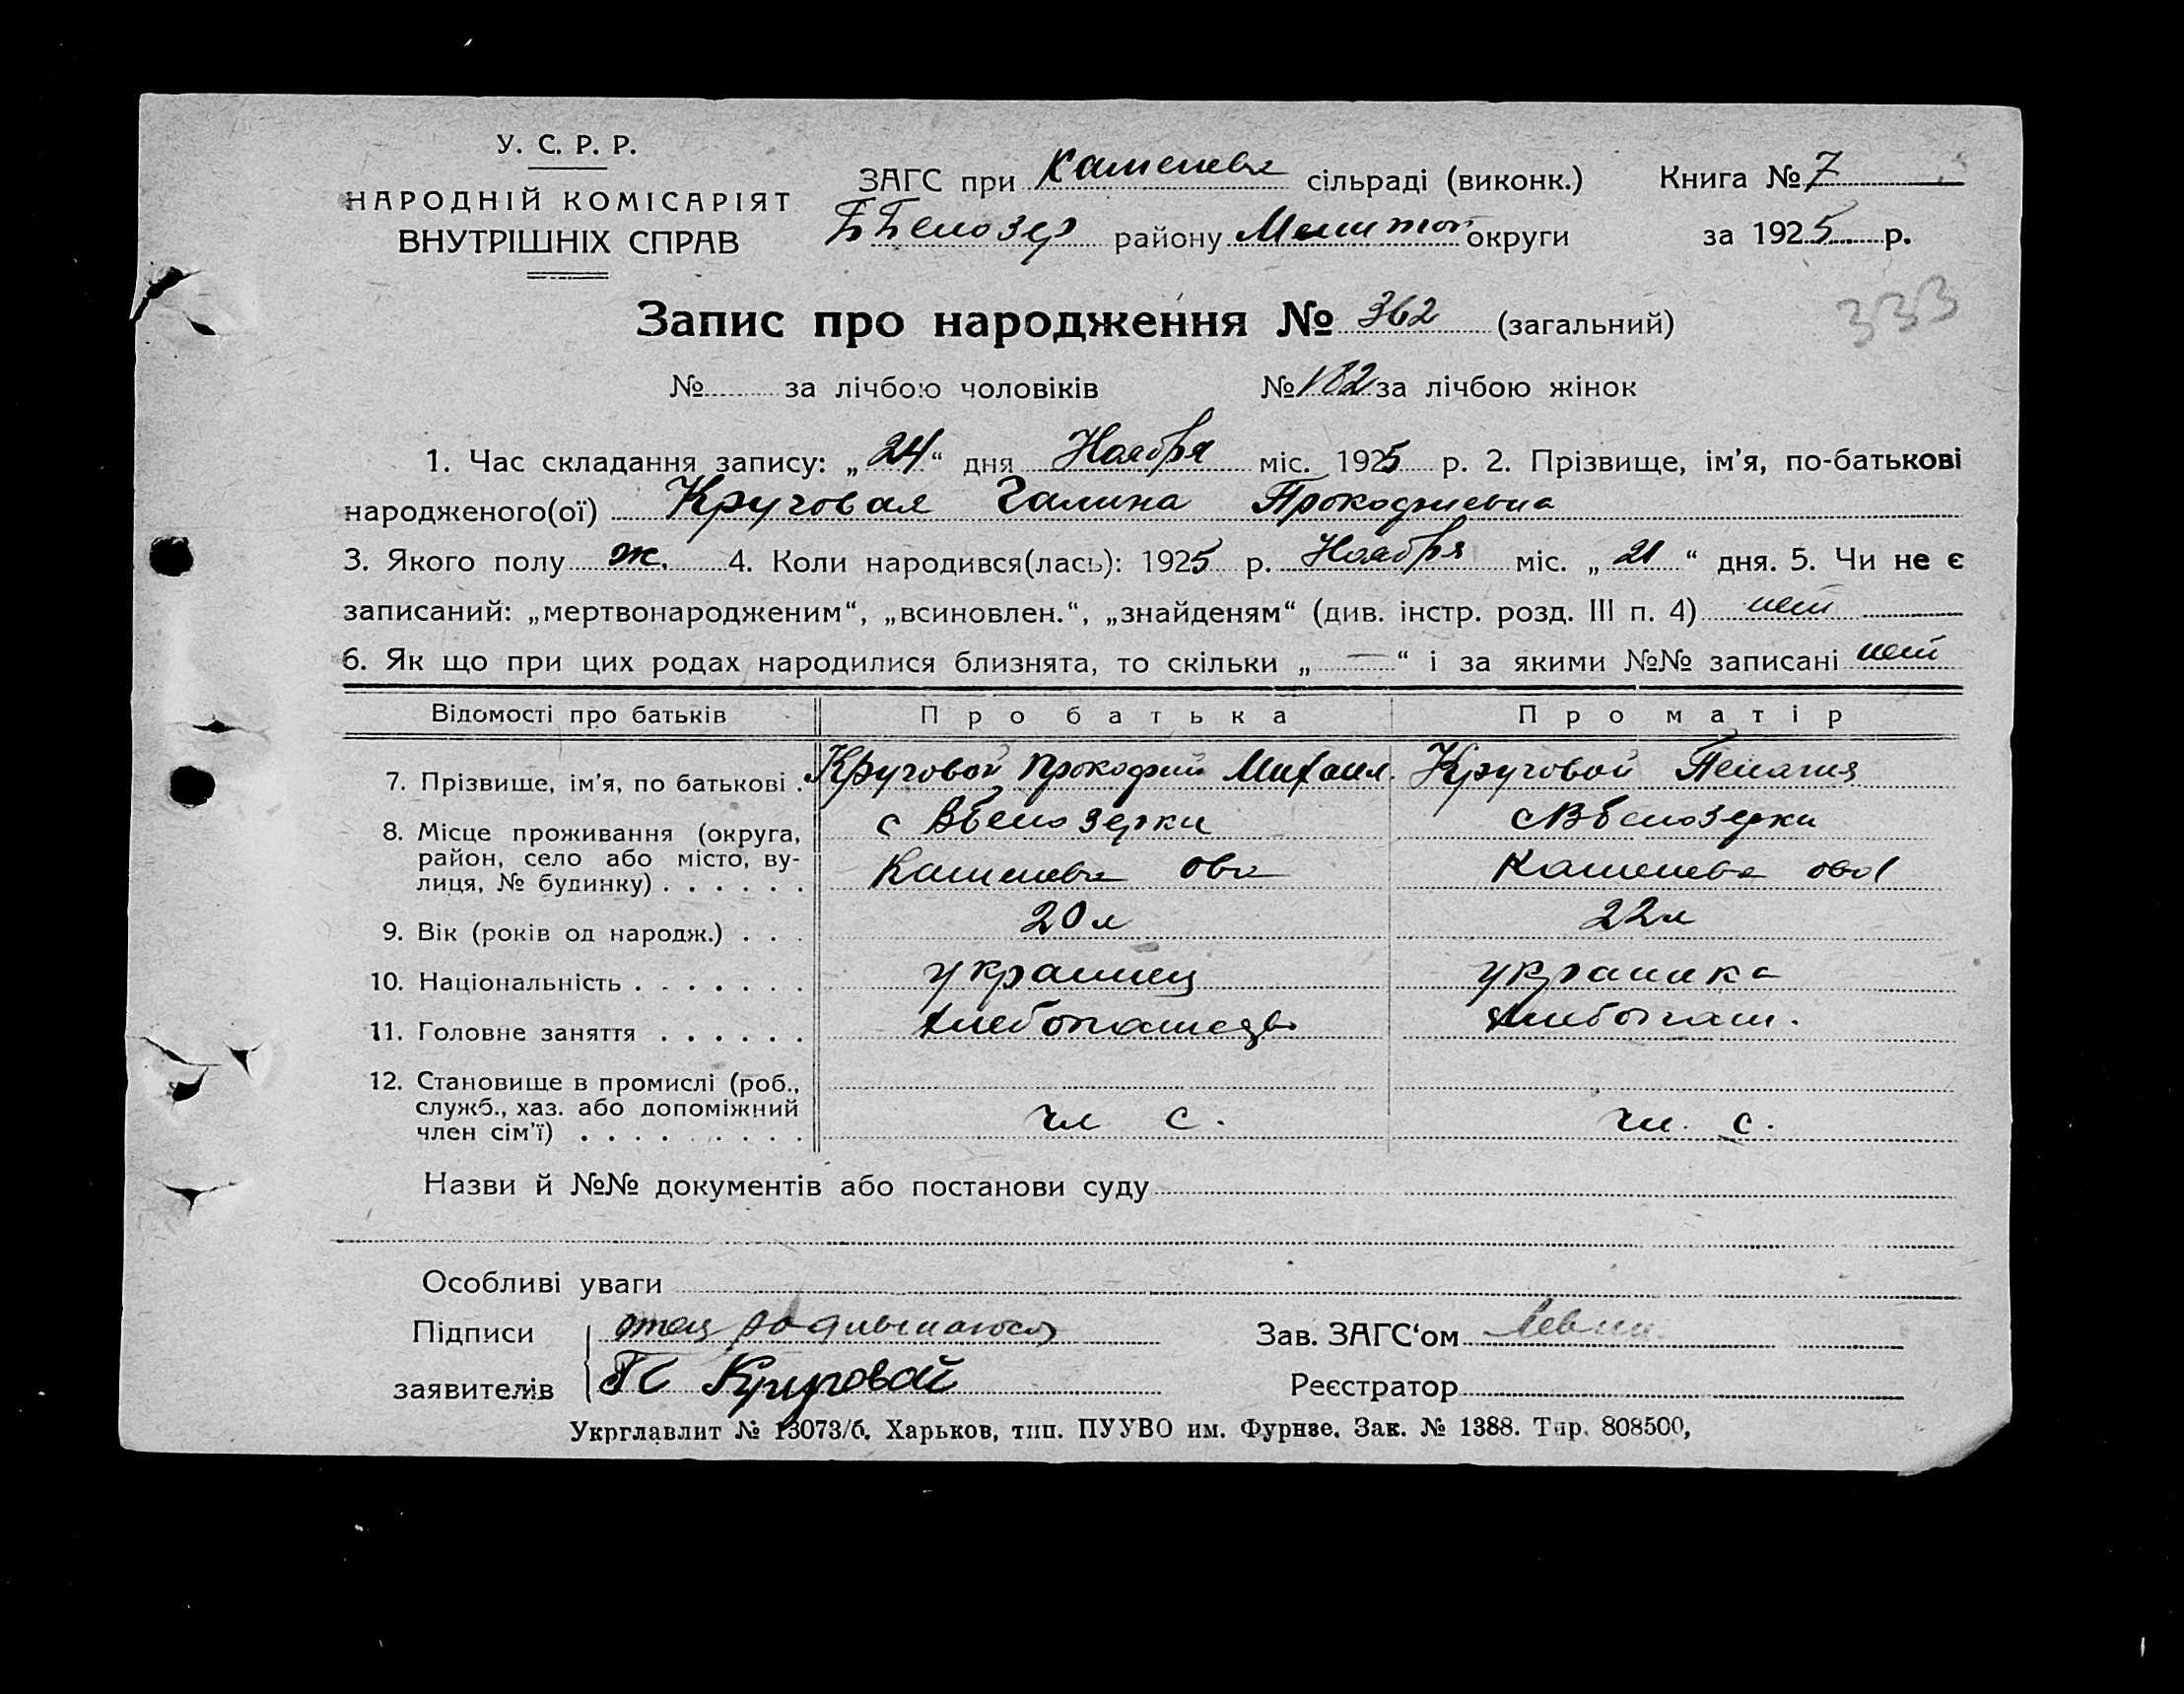 У. С. Р. Р.
НАРОДНІЙ КОМІСАРІЯТ
ВНУТРІШНІХ СПРАВ
ЗАГС при Каменева сільраді (виконк.) Книга № 7
Белозер району Мелитоп округи за 1925 р.
333
Запис про народження № 362 (загальний)
№ за лічбою чоловіків № 182 за лічбою жінок
1. Час складання запису: „24“ дня Ноября міс. 1925 р. 2. Прізвище, ім'я, по-батькові
народженого(ої) Круговая Галина Прокофиевна
3. Якого полу ж. 4. Коли народився(лась): 1925 р. Ноября міс. „21“ дня. 5. Чи не є
записаний: „мертвонародженим“, „всиновлен.“, „знайденям“ (див. інстр. розд. III п. 4) нет
6. Як що при цих родах народилися близнята, то скільки „—“ і за якими №№ записані нет
Відомості про батьків Про батька Про матір
7. Прізвище, ім'я, по батькові . Круговой Прокофий Михаил. Круговой Пелагия
8. Місце проживання (округа, с Вбелозерки с Вбелозерки
район, село або місто, ву-
лиця, № будинку) . . . . . . Каменева ова Каменева ова
9. Вік (років од народж.) . . . 20 л 22 л
10. Національність . . . . . . . украинец украинка
11. Головне заняття . . . . . . хлебопашец хлебопаш.
12. Становище в промислі (роб.,
служб., хаз. або допоміжний
член сім'ї) . . . . . . . . . чл с. чл. с.
Назви й №№ документів або постанови суду
Особливі уваги
Підписи отец Зав. ЗАГС‘ом Левин
заявителів Круговой Реєстратор
Укрглавлит № 13073/б. Харьков, тип. ПУУВО им. Фурнзе. Зак. № 1388. Тир. 808500,